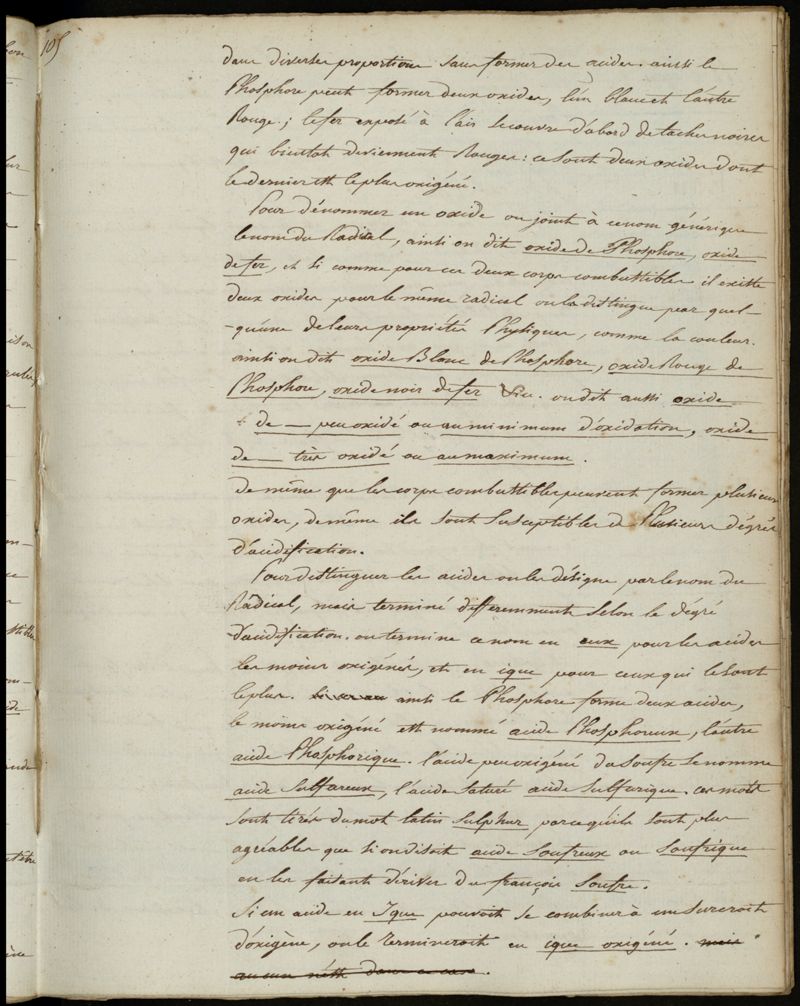 105
dans diverses proportions sans former des acides. ainsi le
Phosphore peut former deux oxides, l'un blanc et l'autre
Rouge; le fer exposé à l'air se couvre d'abord de taches noires
qui bientot deviennent Rouges: ce sont deux oxides dont
le dernier est le plus oxigéné.
Pour dénommer un oxide on joint à ce nom générique
le nom du Radical, ainsi on dit oxide de Phosphore, oxide
de fer, et si comme pour ces deux corps combustibles il existe
deux oxides pour le même radical on les distingue par quel-
-qu'une de leurs propriétés Physiques, comme la couleur.
ainsi on dit oxide Blanc de Phosphore, oxide Rouge de
Phosphore, oxide noir de fer &c. on dit aussi oxide
de — peu oxidé ou au minimum d'oxidation, oxide
de — très oxidé ou au maximum.
de même que les corps combustibles peuvent former plusieurs
oxides, de même ils sont susceptibles de Plusieurs dégrés
d'acidification.
Pour distinguer les acides on les désigne par le nom du
Radical, mais terminé differemment selon le dégré
d'acidification. on termine ce nom en eux pour les acides
les moins oxigénés, et en ique pour ceux qui le sont
le plus. ainsi le Phosphore forme deux acides,
le moins oxigéné est nommé acide Phosphoreux, l'autre
acide Phosphorique. l'acide peu oxigéné du Soufre se nomme
acide Sulfureux, l'acide saturé acide Sulfurique. ces mots
sont tirés du mot latin Sulphur parcequ'ils sont plus
agréables que si on disoit acide Soufreux ou Soufrique
en les faisant dériver du françois Soufre.
Si un acide en Ique pouvoit se combiner à un surcroit
d'oxigène, on le termineroit en ique oxigéné. mais
aucun n'est dans ce cas.